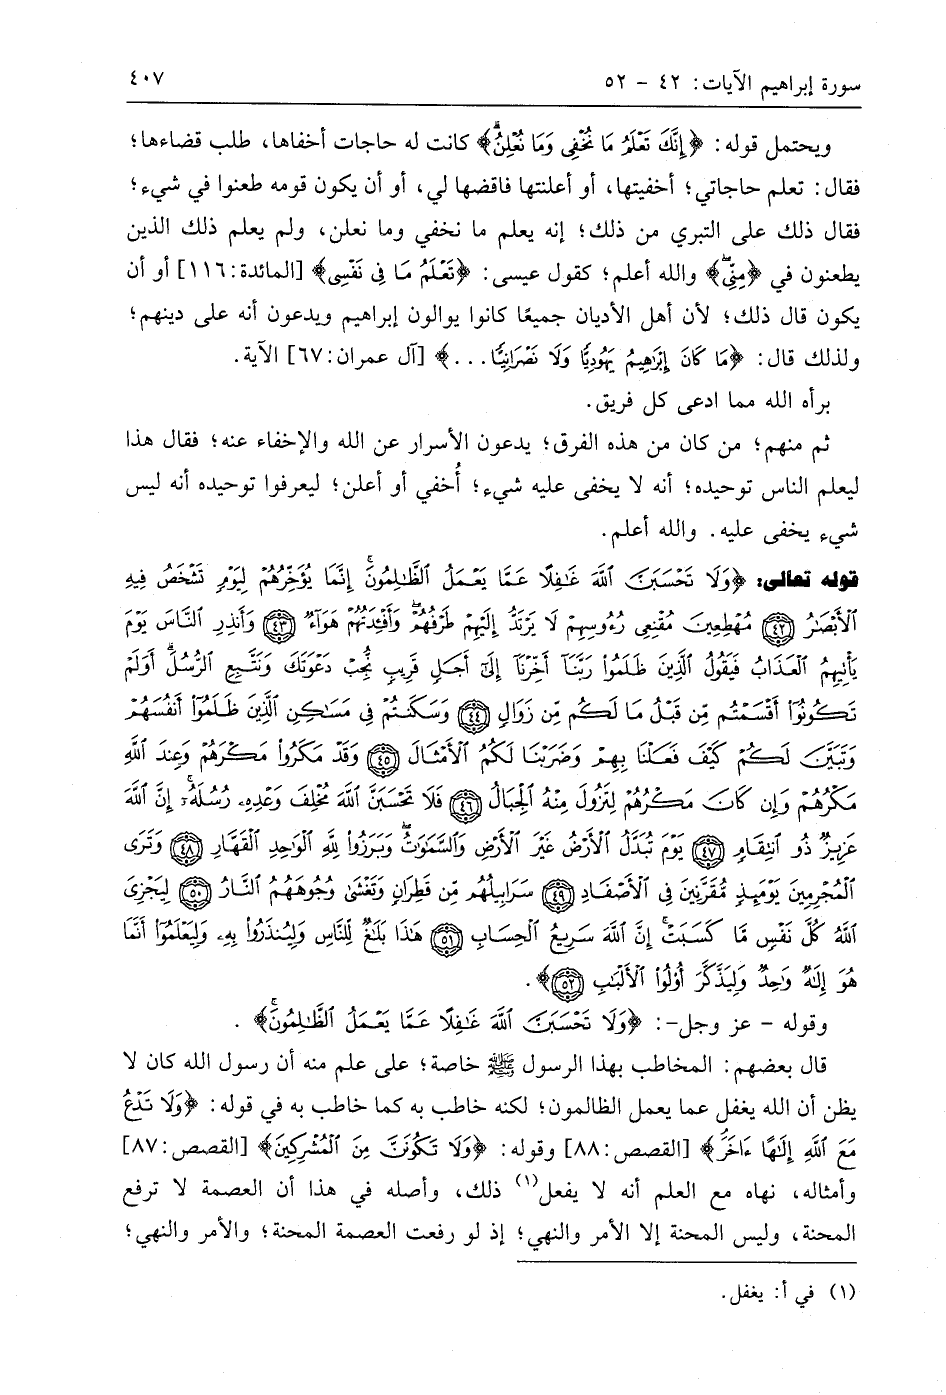 سورة إبراهيم الآيات: ٤٢ - ٥٢
٤٠٧
ويحتمل قوله: ﴿إِنَّكَ تَعْلَمُ مَا نُخْفِى وَمَا نُعْلِنُ﴾ كانت له حاجات أخفاها، طلب قضاءها؛
فقال: تعلم حاجاتي؛ أخفيتها، أو أعلنتها فاقضها لي، أو أن يكون قومه طعنوا في شيء؛
فقال ذلك على التبري من ذلك؛ إنه يعلم ما نخفي وما نعلن، ولم يعلم ذلك الذين
يطعنون في ﴿مِنِّىۖ﴾ والله أعلم؛ كقول عيسى: ﴿تَعْلَمُ مَا فِى نَفْسِى﴾ [المائدة:١١٦] أو أن
يكون قال ذلك؛ لأن أهل الأديان جميعًا كانوا يوالون إبراهيم ويدعون أنه على دينهم؛
ولذلك قال: ﴿مَا كَانَ إِبْرَٰهِيمُ يَهُودِيًّا وَلَا نَصْرَانِيًّا...﴾ [آل عمران:٦٧] الآية.
برأه الله مما ادعى كل فريق.
ثم منهم؛ من كان من هذه الفرق؛ يدعون الأسرار عن الله والإخفاء عنه؛ فقال هذا
ليعلم الناس توحيده؛ أنه لا يخفى عليه شيء؛ أُخفي أو أعلن؛ ليعرفوا توحيده أنه ليس
شيء يخفى عليه. والله أعلم.
قوله تعالى: ﴿وَلَا تَحْسَبَنَّ ٱللَّهَ غَٰفِلًا عَمَّا يَعْمَلُ ٱلظَّٰلِمُونَۚ إِنَّمَا يُؤَخِّرُهُمْ لِيَوْمٍ تَشْخَصُ فِيهِ
ٱلْأَبْصَٰرُ ﴿٤٢﴾ مُهْطِعِينَ مُقْنِعِى رُءُوسِهِمْ لَا يَرْتَدُّ إِلَيْهِمْ طَرْفُهُمْۖ وَأَفْـِٔدَتُهُمْ هَوَآءٌ ﴿٤٣﴾ وَأَنذِرِ ٱلنَّاسَ يَوْمَ
يَأْتِيهِمُ ٱلْعَذَابُ فَيَقُولُ ٱلَّذِينَ ظَلَمُوا۟ رَبَّنَآ أَخِّرْنَآ إِلَىٰٓ أَجَلٍ قَرِيبٍ نُّجِبْ دَعْوَتَكَ وَنَتَّبِعِ ٱلرُّسُلَۗ أَوَلَمْ
تَكُونُوٓا۟ أَقْسَمْتُم مِّن قَبْلُ مَا لَكُم مِّن زَوَالٍ ﴿٤٤﴾ وَسَكَنتُمْ فِى مَسَٰكِنِ ٱلَّذِينَ ظَلَمُوٓا۟ أَنفُسَهُمْ
وَتَبَيَّنَ لَكُمْ كَيْفَ فَعَلْنَا بِهِمْ وَضَرَبْنَا لَكُمُ ٱلْأَمْثَالَ ﴿٤٥﴾ وَقَدْ مَكَرُوا۟ مَكْرَهُمْ وَعِندَ ٱللَّهِ
مَكْرُهُمْ وَإِن كَانَ مَكْرُهُمْ لِتَزُولَ مِنْهُ ٱلْجِبَالُ ﴿٤٦﴾ فَلَا تَحْسَبَنَّ ٱللَّهَ مُخْلِفَ وَعْدِهِۦ رُسُلَهُۥٓۚ إِنَّ ٱللَّهَ
عَزِيزٌ ذُو ٱنتِقَامٍ ﴿٤٧﴾ يَوْمَ تُبَدَّلُ ٱلْأَرْضُ غَيْرَ ٱلْأَرْضِ وَٱلسَّمَٰوَٰتُۖ وَبَرَزُوا۟ لِلَّهِ ٱلْوَٰحِدِ ٱلْقَهَّارِ ﴿٤٨﴾ وَتَرَى
ٱلْمُجْرِمِينَ يَوْمَئِذٍ مُّقَرَّنِينَ فِى ٱلْأَصْفَادِ ﴿٤٩﴾ سَرَابِيلُهُم مِّن قَطِرَانٍ وَتَغْشَىٰ وُجُوهَهُمُ ٱلنَّارُ ﴿٥٠﴾ لِيَجْزِىَ
ٱللَّهُ كُلَّ نَفْسٍ مَّا كَسَبَتْۚ إِنَّ ٱللَّهَ سَرِيعُ ٱلْحِسَابِ ﴿٥١﴾ هَٰذَا بَلَٰغٌ لِّلنَّاسِ وَلِيُنذَرُوا۟ بِهِۦ وَلِيَعْلَمُوٓا۟ أَنَّمَا
هُوَ إِلَٰهٌ وَٰحِدٌ وَلِيَذَّكَّرَ أُو۟لُوا۟ ٱلْأَلْبَٰبِ ﴿٥٢﴾﴾.
وقوله - عز وجل-: ﴿وَلَا تَحْسَبَنَّ ٱللَّهَ غَٰفِلًا عَمَّا يَعْمَلُ ٱلظَّٰلِمُونَۚ﴾.
قال بعضهم: المخاطب بهذا الرسول ﷺ خاصة؛ على علم منه أن رسول الله كان لا
يظن أن الله يغفل عما يعمل الظالمون؛ لكنه خاطب به كما خاطب به في قوله: ﴿وَلَا تَدْعُ
مَعَ ٱللَّهِ إِلَٰهًا ءَاخَرَۘ﴾ [القصص:٨٨] وقوله: ﴿وَلَا تَكُونَنَّ مِنَ ٱلْمُشْرِكِينَ﴾ [القصص:٨٧]
وأمثاله، نهاه مع العلم أنه لا يفعل(١) ذلك، وأصله في هذا أن العصمة لا ترفع
المحنة، وليس المحنة إلا الأمر والنهي؛ إذ لو رفعت العصمة المحنة؛ والأمر والنهي؛
(١) في أ: يغفل.